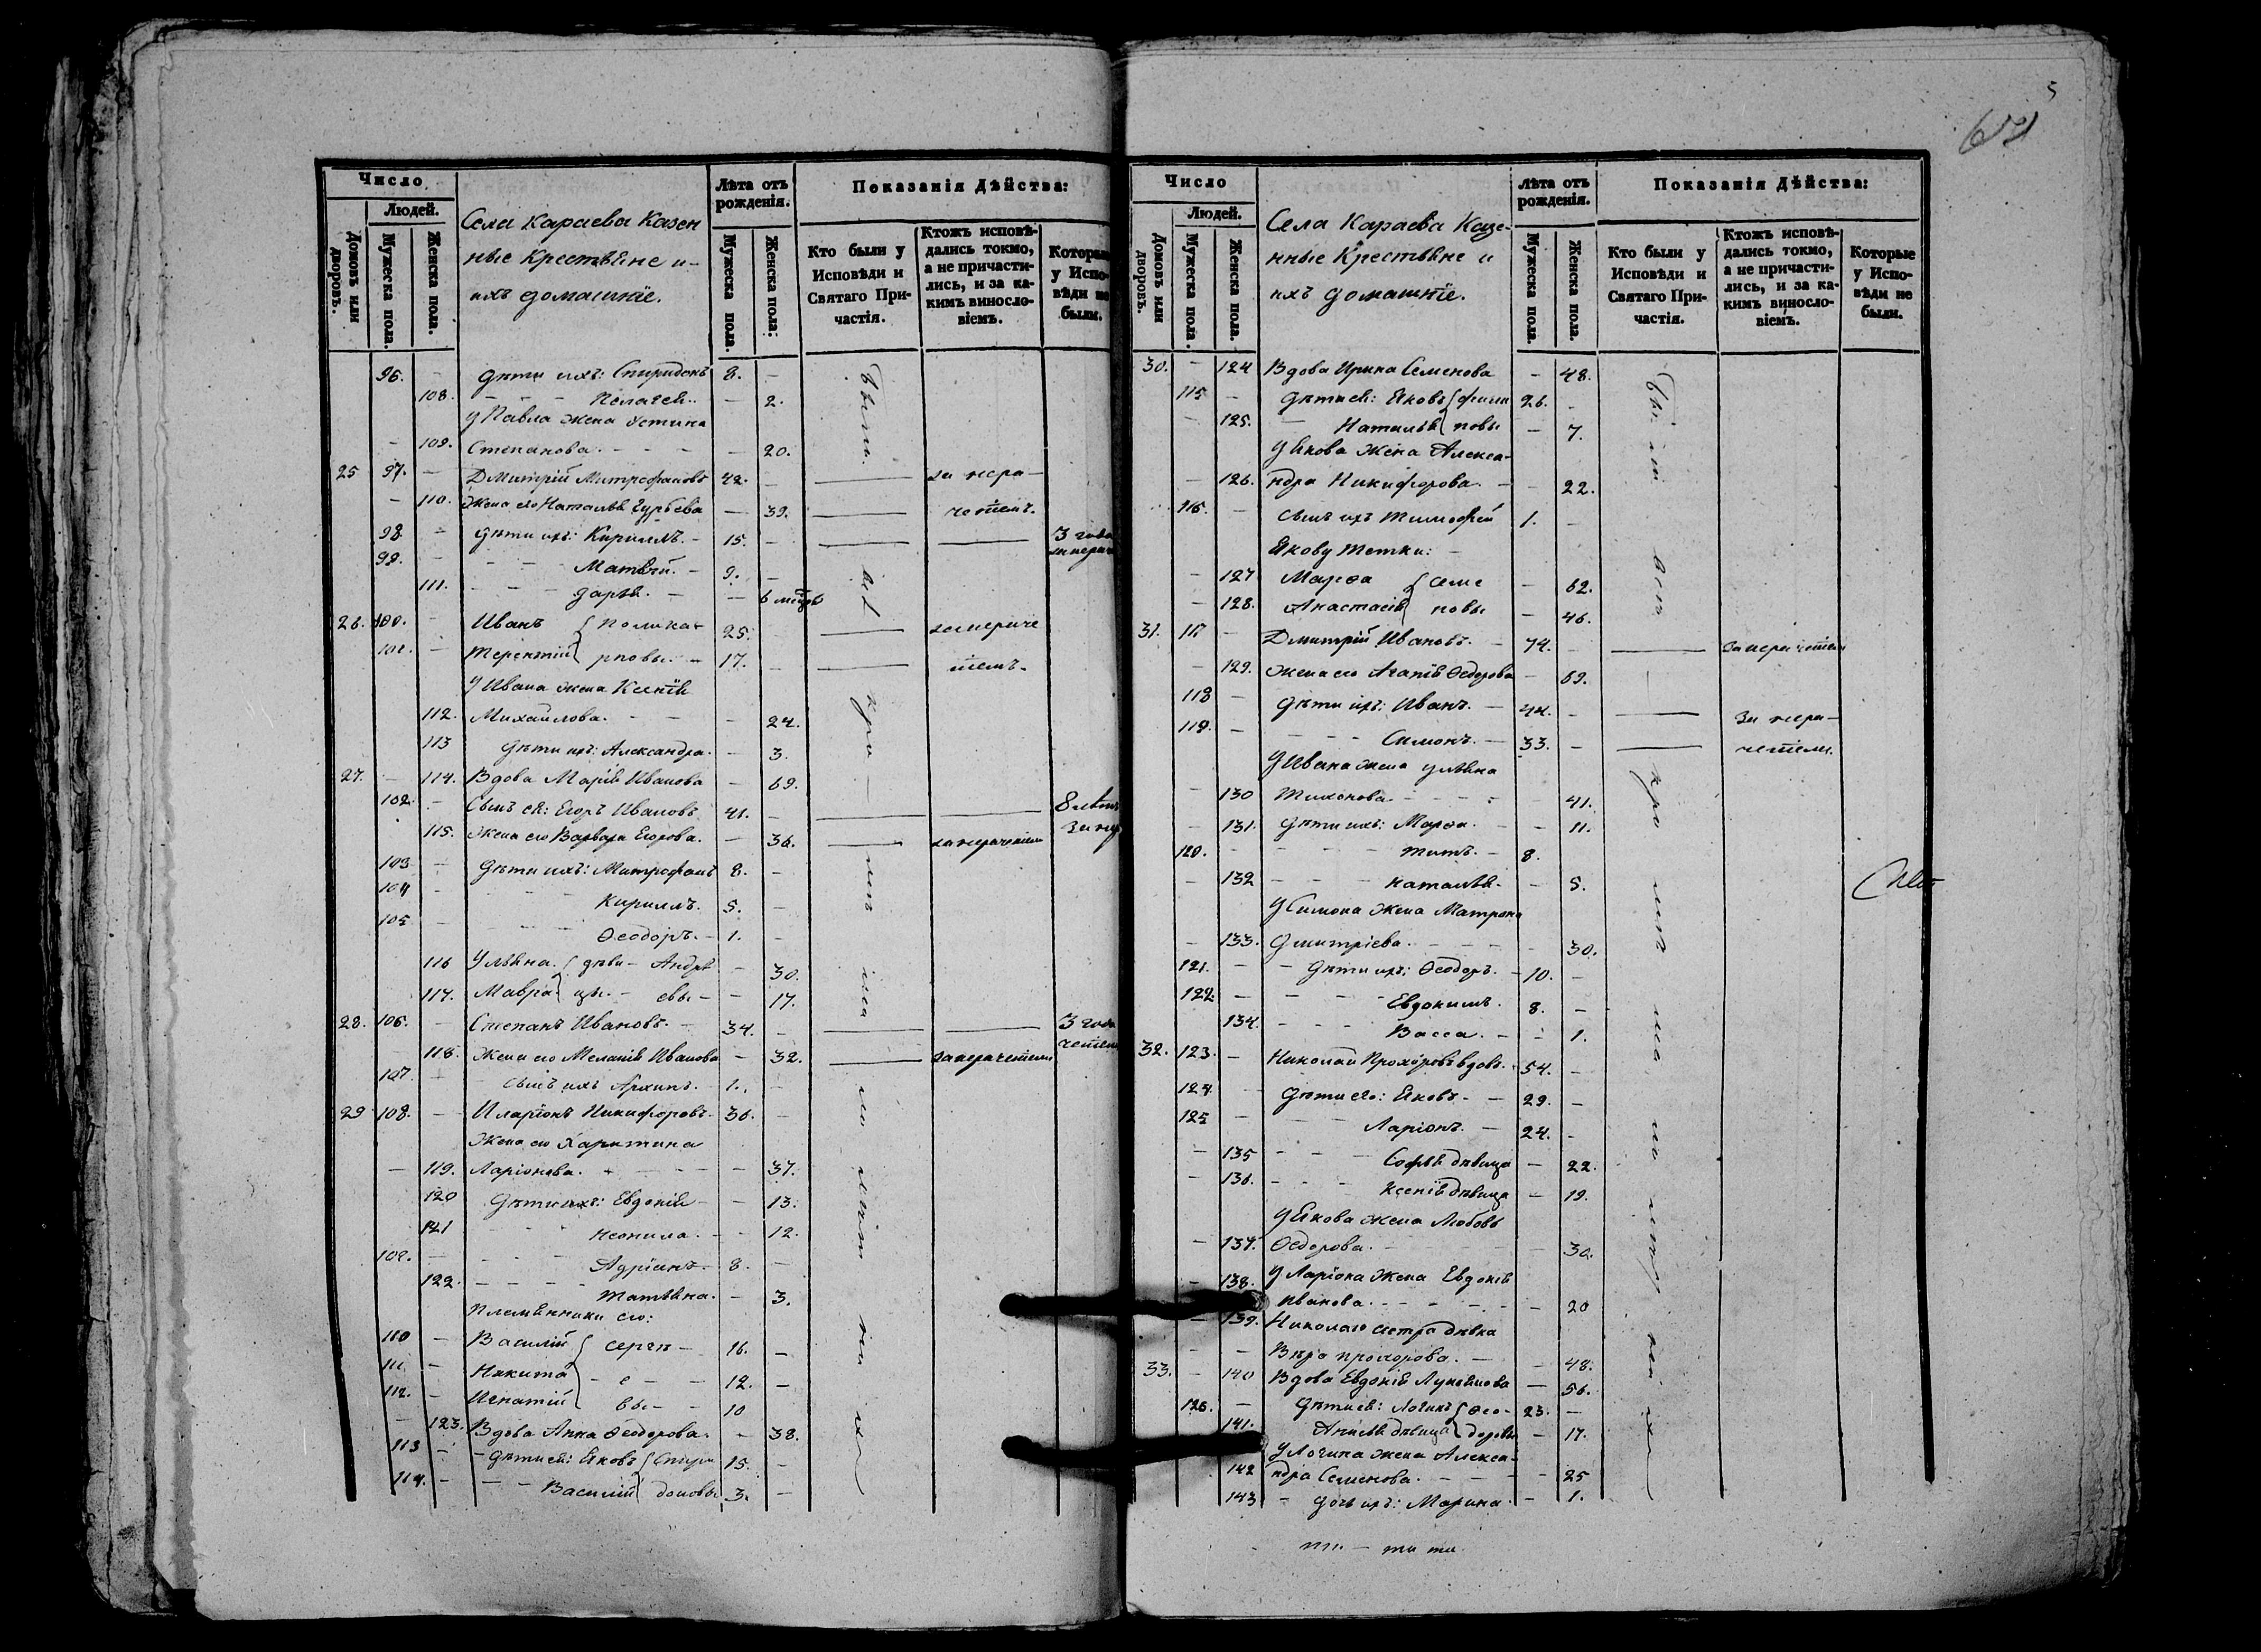 Число
Людей.
Домовъ или дворовъ.
Мужеска пола.
Женска пола.
Села Караева Казен
ные Крестьяне и
ихъ домашніе.
Лѣта отъ рожденія.
Мужеска пола.
Женска пола:
Показанія Дѣйства:
Кто были у Исповѣди и Святаго Причастія.
Ктожъ исповѣдались токмо, а не причастились, и за какимъ винословіемъ.
Которые у Исповѣди не были.
96. - дѣти ихъ: Спиридонъ 8. -
108. - - - Пелагея.. - 2.
У Павла жена Устина
- 109. Степанова. - - - - 20.
25 97. - Дмитрій Митрофановъ 42. - за нера-
- 110. Жена его Наталья Гурьева - 39. ченіемъ.
98. - дѣти ихъ: Кириллъ. - 15. - 3 года
99. - - Матвѣй. - 9. -
111. - - - Дарья. - - 6 месяц
26. 100. - Иванъ { полика- 25. занераче
101. - Терентій { рповы. - 17. - ніемъ.
У Ивана жена Ксенія
112. Михайлова. - - - 24.
113 дѣти ихъ: Александра. - 3.
27. - 114. Вдова Марія Иванова - 69.
102. - Сынъ ея: Егоръ Ивановъ 41. - 8 лѣтъ
115. Жена его Варвара Егорова. - 36. занераченіемъ
103 - дѣти ихъ: Митрофанъ 8. -
104 - - - Кириллъ. 5. -
105 - - - - Ѳеодоръ. - 1. -
116 Ульяна. { дѣви- Андрѣ - 30.
117. Мавра { цы. - евы - - 17.
28. 106. - Степанъ Ивановъ. - 34. - 3 года
118. Жена его Меланія Иванова - 32. занераченіемъ
107. - - сынъ ихъ Архипъ. - 1. -
29 108. - Иларіонъ Никифоровъ - 36. -
Жена его Харитина
- 119. Ларіонова. - - - - - 37.
120 дѣти ихъ: Евдокія - - 13.
121 - - Неонила. - - 12.
109. - - - Адріанъ. - 8. -
122. - - - - Татьяна. - - 3.
Племянники его:
110 - Василій { Сергѣ - 16. -
111. - Никита { - е - - 12. -
112. - Игнатій { вы - - 10
- 123. Вдова Анна Ѳеодорова. - 38.
113 - - дѣти ея: Яковъ { Спири 15. -
114. - - - Василій { доновы 3. -
Число
Людей.
Домовъ или дворовъ.
Мужеска пола.
Женска пола.
Села Караева Казе-
нные Крестьяне и
ихъ домашніе.
Лѣта отъ рожденія.
Мужеска пола.
Женска пола.
Показанія Дѣйства:
Кто были у Исповѣди и Святаго Причастія.
Ктожъ исповѣдались токмо, а не причастились, и за какимъ винословіемъ.
Которые у Исповѣди не были.
30. - 124 Вдова Ирина Семенова - 48.
115 - дѣти ея: Яковъ { фили 26. -
- 125. - Наталья { повы - 7.
У Якова жена Алекса-
- 126. ндра Никифорова - - 22.
116. - сынъ ихъ Тимофей 1. -
Якову тетки: -
- 127 Марѳа { Семе - 62.
- 128. Анастасія { новы - 46.
31. 117 - Дмитрій Ивановъ. - 74. - занераченіем
- 129. Жена его Агапія Ѳедорова - 69.
118 - дѣти ихъ: Иванъ. - 44. - за нера-
119. - - - - Симонъ. - 33. - ченіемъ.
У Ивана жена Ульяна
- 130 Тихонова - - - 41.
- 131. дѣти ихъ: Марѳа. - - 11.
120. - - - - Титъ. - 8.
- 132 - - - Наталья. - - 5.
У Симона жена Матрона
- 133. Дмитріева. - - - - 30.
121. - - дѣти ихъ: Ѳеодоръ. - 10. -
122. - - - - Евдокимъ. 8. -
134. - - - Васса. - - 1.
32. 123. - Николай Прохоровъ вдовъ. - 54. -
124. - дѣти его: Яковъ - - 29. -
125 - - - Ларіонъ. - 24. -
- 135 - - - Софья дѣвица - 22.
- 136. - - - Ксенія дѣвица - 19.
У Якова жена Любовь
- 137. Ѳедорова. - - - 30.
У Ларіона жена Евдокія
- 138. Иванова. - - - - - - 20
- 139. Николаю сестра дѣвка
- - Вѣра Прохорова. - - 48.
33. - 140 Вдова Евдокія Лукоянова - 56.
126. - дѣти ея: Логинъ { Ѳео- 23. -
141. Анисья дѣвица { доровы - 17.
У Логина жена Алекса-
142 ндра Семенова. - - - - 25
143 - дочь ихъ: Марина - - 1.